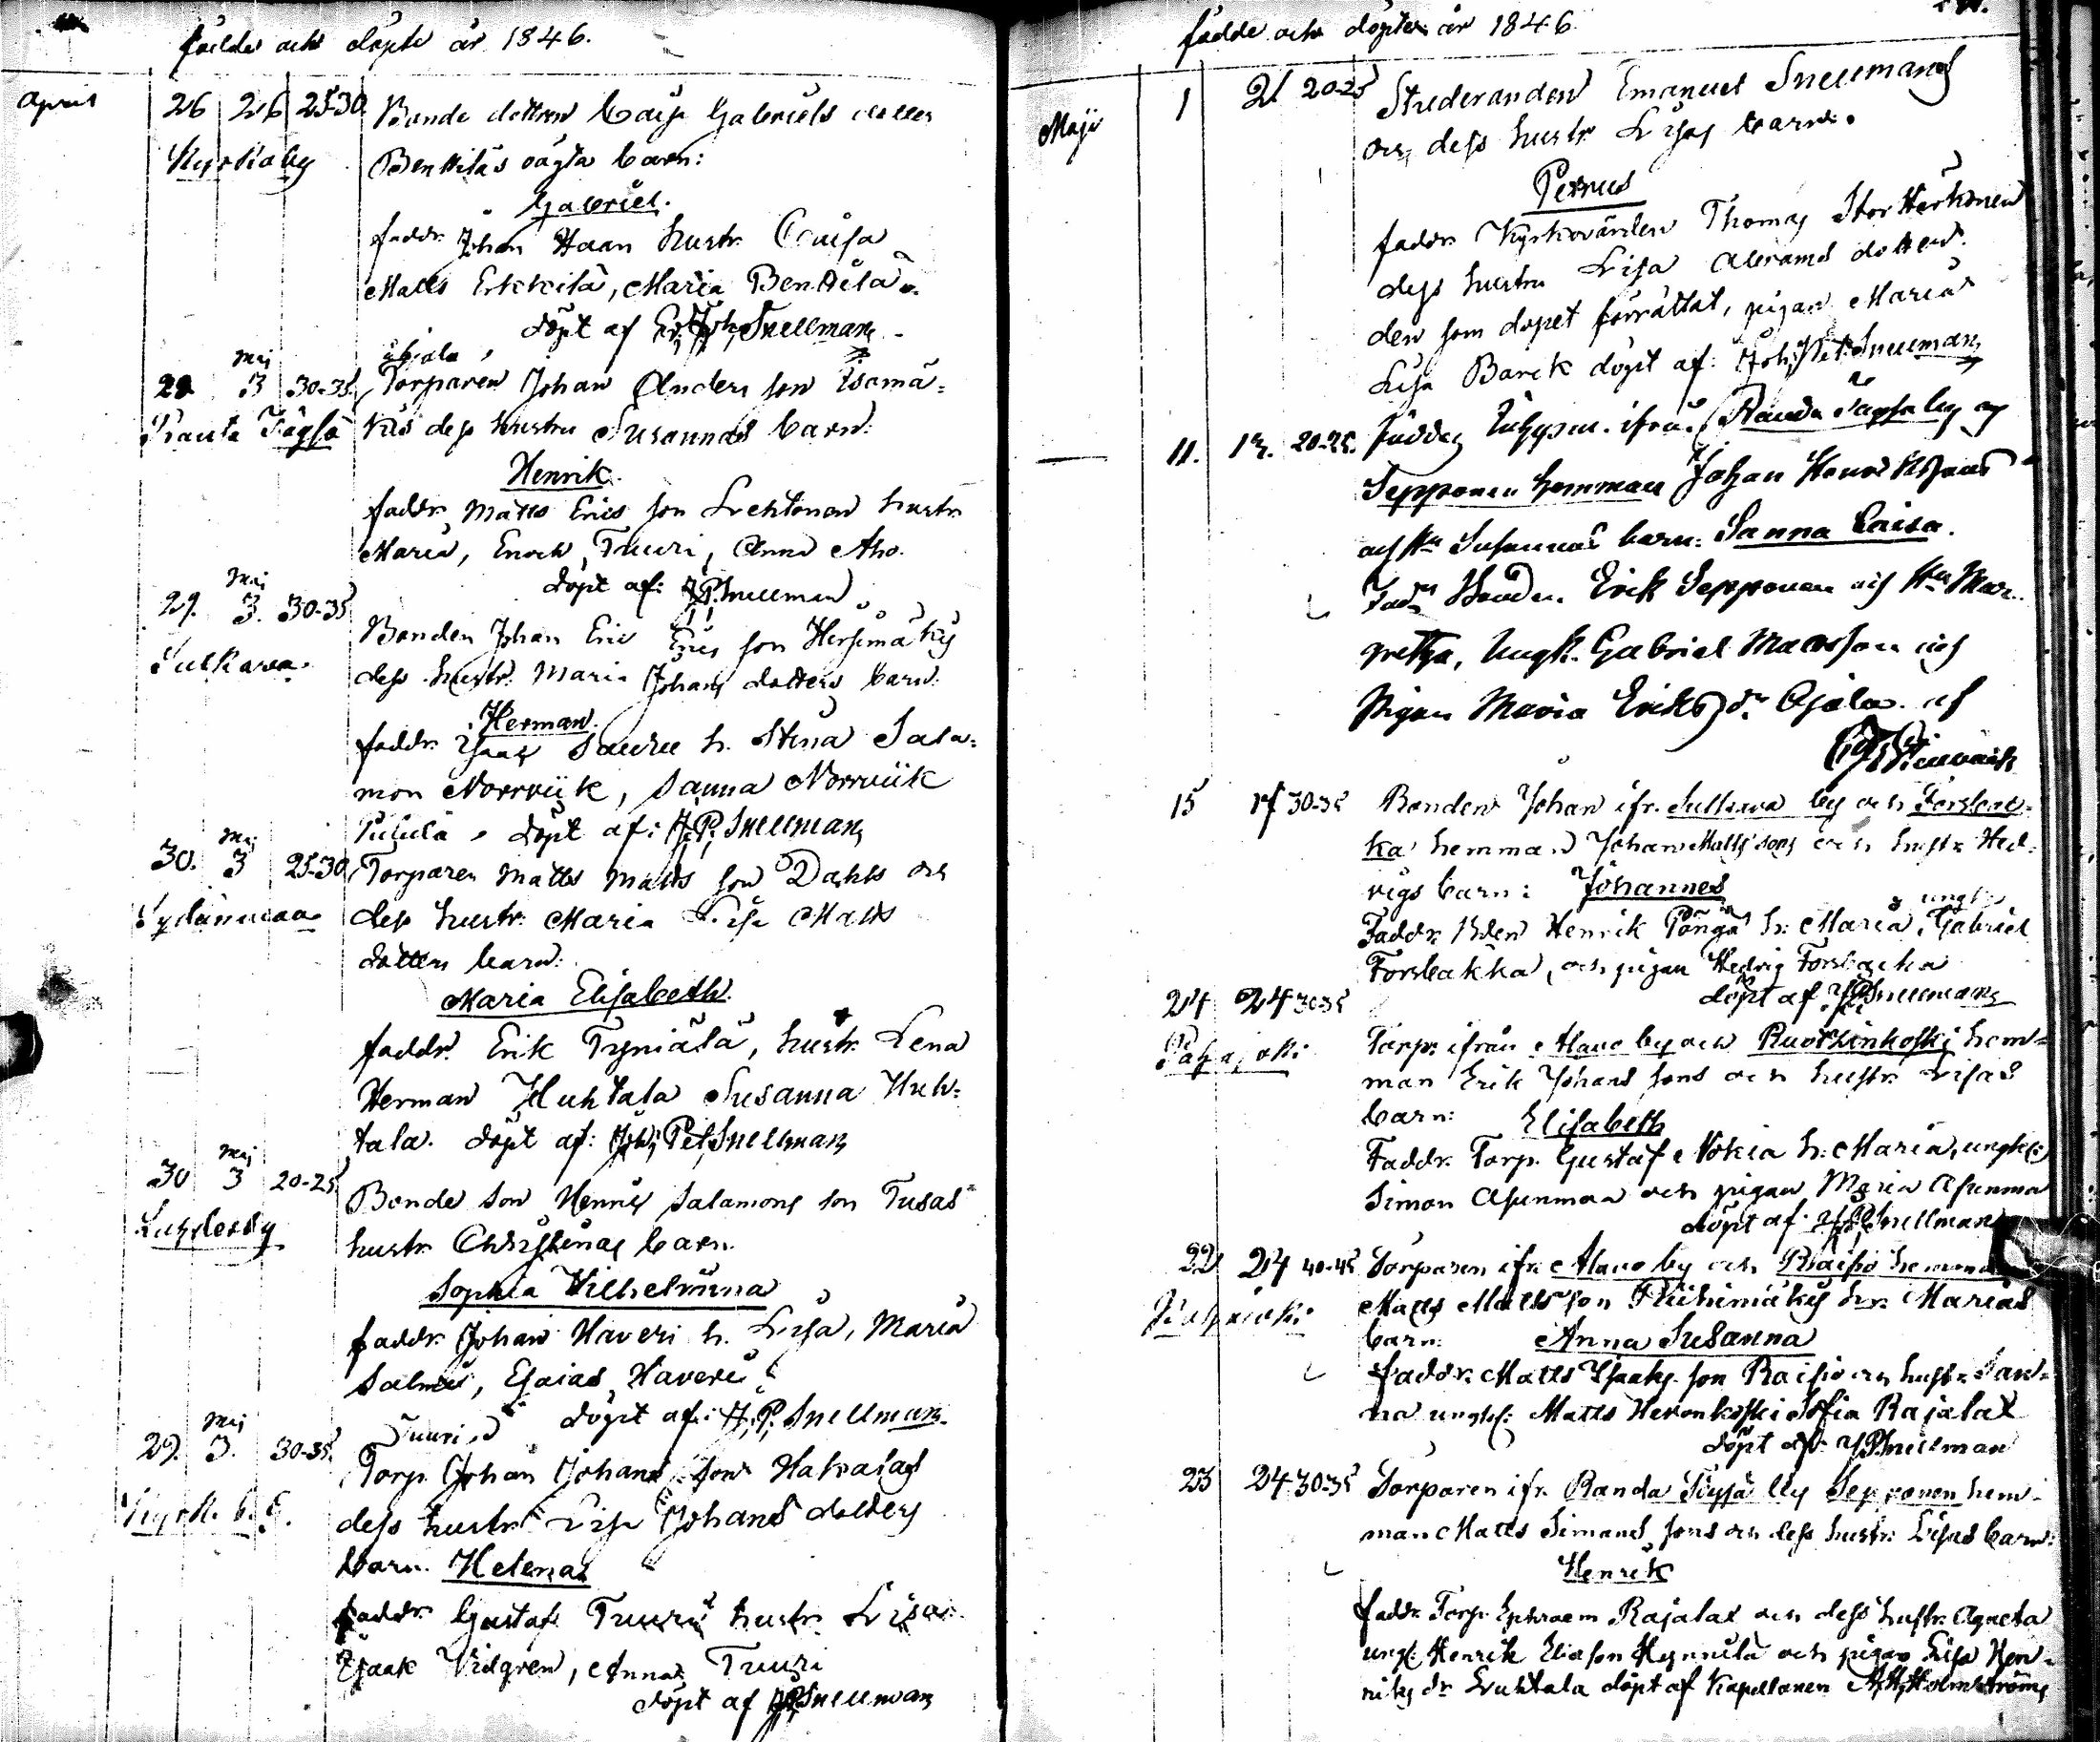 födde och döpte år 1846.
April 26 26 25-30 Bonde dottren Caisa Gabriels dotter
Kyrkoby Benttiläs oägta barn:
Gabriel.
faddr. Johan Haan hustr. Caisa
Matts Erkkilä, Maria Benttilä
döpt af Joh. Snellman
29 Maj 3 30-35 Torparen Johan Anders son Isomä-
Ranta Töysä kis dess hustru Susannas barn:
Henrik
faddr. Matts Erics son Lehtonen hustr.
Maria, Enoch Tuuri, Anna Aho.
döpt af: J.P. Snellman
29. Maj 3. 30-35 Bonden Johan Eric Erics son Hersimäkis
Sulkava. dess hustr. Maria Johans dotters barn:
Herman.
faddr. Isaac Sauru h. Stina Sala-
mon Norrviik, Sanna Norrviik
döpt af: J.P. Snellman
30. Maj 3 25-30 Torparen Matts Matts son Dahls och
Sydänmaa dess hustr. Maria Lisa Matts
dotters barn:
Maria Elisabeth.
faddr. Erik Tyniälä, hustr. Lena
Herman Huhtala Susanna Huh-
tala. döpt af: Joh. Pet. Snellman
30 Maj 3 20-25 Bonde son Henric Salamons son Tusas
hustr. Christinas barn.
Sophia Vilhelmina
faddr. Johan Haveri h. Lisa, Maria
Salmi, Esaias Haveri
Tuuri döpt af: J.P. Snellman.
29. Maj 3. 30-35 Torp. Johan Johans son Hakalas
Kyrk. b. dess hustr. Lisa Johans dotters
barn. Helena
faddr. Gustaf Tuuri hustr. Lisa
Isaak Vidgren, Anna Tuuri
döpt af J.P. Snellman
födde och döpte år 1846
Maji 1 21 20-25 Studeranden Emanuel Snellmans
och dess hustr. Lisas barn.
Petrus
faddr. Kyrkovärden Thomas Stor Herkonen
dess hustru Lisa Abrams dotter.
den som dopet förrättat, pigan Maria
Lisa Barck döpt af: Joh. Pet. Snellman
11. 20-25. födder ifrån Randa Töysä by och
Sepponen hemman Johan
och Hu Susannas barn: Sanna Caisa.
Fadr. Bonden Erik Sepponen och Hu Mar-
gretha, Ungk. Gabriel Mattsson och
Pigan Maria Eriks dr. Ojala. af
15 17 30-35 Bonden Johan ifr. Sulkava by och Forsbac-
ka hemman Johan Matts sons och hustr. Hed-
vigs barn: Johannes
Faddr. Bden Henrik Pöngä h: Maria, ungk. Gabriel
Forsbakka, och pigan Hedvig Forsbacka
döpt af J.P. Snellman
24 24 30-35 Torp. ifrån Alavo by och Ruotzinkoski hem-
Pahajoki man Erik Johans sons och hustr. Lisas
barn: Elisabeth
Faddr. Torp. Gustaf Nokia h: Maria, ungk:
Simon Asunmaa och pigan Maria Asunma
döpt af: J.P. Snellman
22 24 40-45 Torparen ifr. Alavo by och Raisio hemman
Pahajoki Matts Matts son Riihimäkis hr. Marias
barn: Anna Susanna
faddr. Matts Isaks son Raisio och hustr. San-
na ungk: Matts Heronkoski Sofia Rajala
döpt af: J.P. Snellman
23 24 30-35 Torparen ifr. Randa Töysä by Sepponen hem-
man Matts Simons sons och dess hustr. Lisas barn:
Henrik
faddr. Torp. Ephraem Rajala och dess hustr. Agneta
ungk: Henrik Eliason Hynnilä och pigan Lisa Hen-
riks dr Luhtala döpt af Kapellanen Holmström